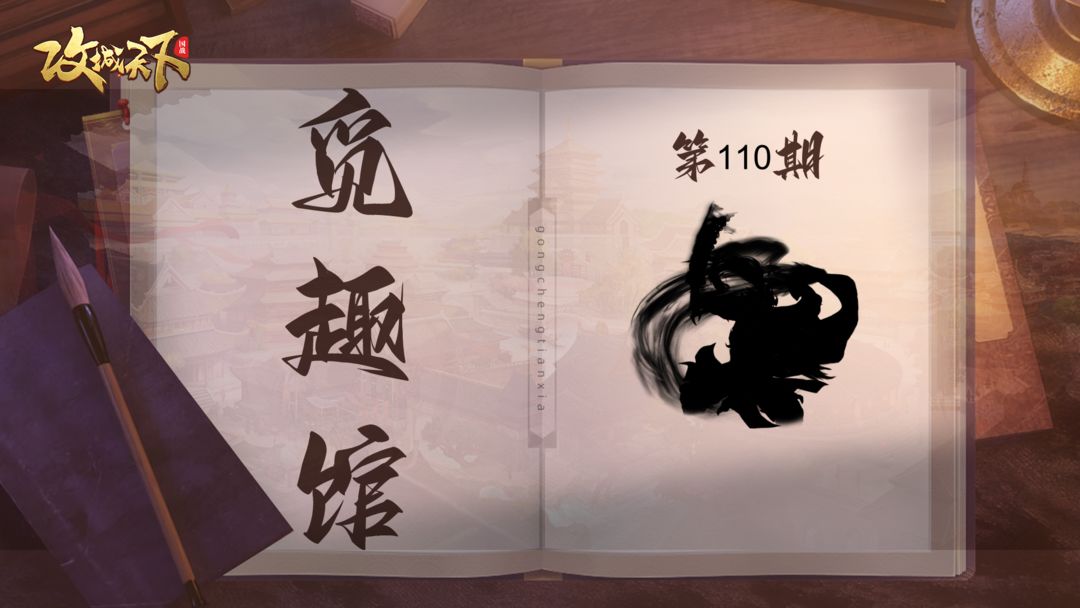 攻城天下
国战
觅趣馆
第110期
gongchengtianxia